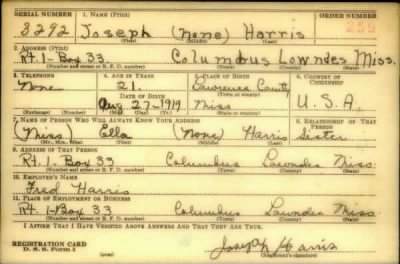 SERIAL NUMBER 1. NAME (Print) ORDER NUMBER
3292 Joseph (None) Harris 255
2. ADDRESS (Print)
Rt. 1-Box 33 Columbus Lowndes Miss.
(Number and street or R. F. D. number) (Town) (County) (State)
3. TELEPHONE 4. AGE IN YEARS 5. PLACE OF BIRTH 6. COUNTRY OF CITIZENSHIP
None 21 Lawrence County
DATE OF BIRTH (Town or county)
Aug 27-1919 Miss U.S.A.
(Exchange) (Number) (Mo.) (Day) (Yr.) (State or country)
7. NAME OF PERSON WHO WILL ALWAYS KNOW YOUR ADDRESS 8. RELATIONSHIP OF THAT PERSON
(Miss) Ella (None) Harris Sister
(Mr., Mrs., Miss) (First) (Middle) (Last)
9. ADDRESS OF THAT PERSON
Rt. 1-Box 33 Columbus Lowndes Miss.
(Number and street or R. F. D. number) (Town) (County) (State)
10. EMPLOYER'S NAME
Fred Harris
11. PLACE OF EMPLOYMENT OR BUSINESS
Rt. 1-Box 33 Columbus Lowndes Miss.
(Number and street or R. F. D. number) (Town) (County) (State)
I AFFIRM THAT I HAVE VERIFIED ABOVE ANSWERS AND THAT THEY ARE TRUE.
REGISTRATION CARD
D. S. S. Form 1 Joseph Harris
(Registrant's signature)